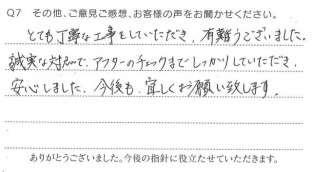 Q7 その他、ご意見ご感想、お客様の声をお聞かせください。
とても丁寧な工事をしていただき、有難うございました。
誠実な対応で、アフターのチェックまでしっかりしていただき、
安心しました。今後も、宜しくお願い致します。
ありがとうございました。今後の指針に役立たせていただきます。